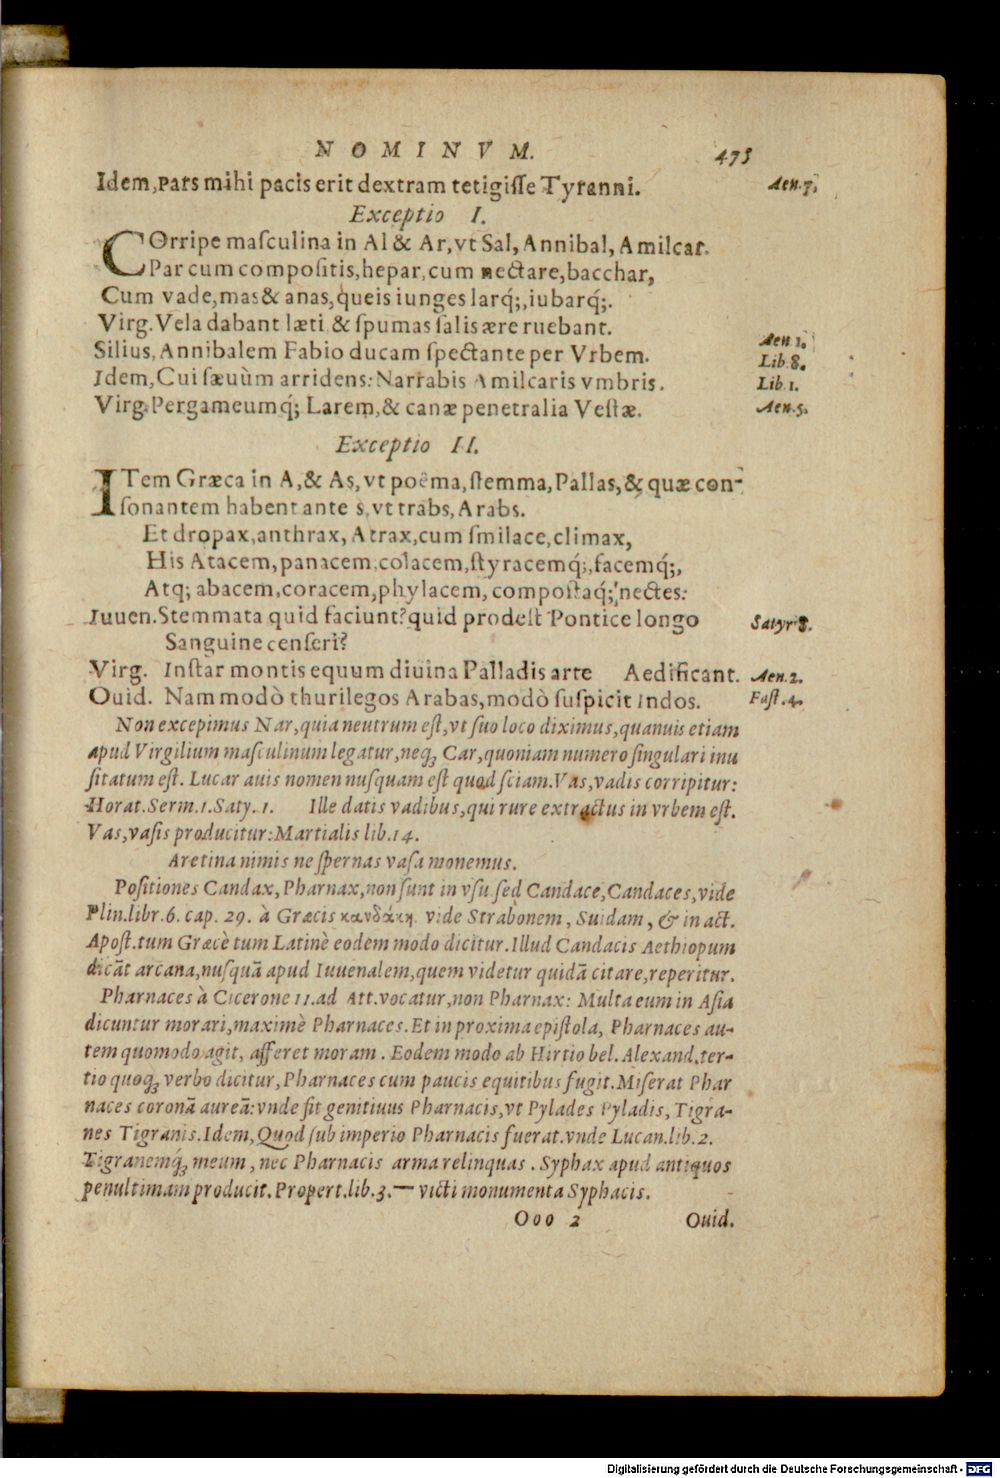 NOMINVM. 475
Idem, Pars mihi pacis erit dextram tetigiſſe Tyranni. Aen. 7.
Exceptio I.
COrripe maſculina in Al & Ar, vt Sal, Annibal, Amilcar.
Par cum compoſitis, hepar, cum nectare, bacchar,
Cum vade, mas & anas, queis iunges larq́;, iubarq́;.
Virg. Vela dabant læti & ſpumas ſalis ære ruebant. Aen 1.
Silius, Annibalem Fabio ducam ſpectante per Vrbem. Lib. 8.
Idem, Cui ſæuùm arridens: Narrabis Amilcaris vmbris. Lib. 1.
Virg. Pergameumq́; Larem, & canæ penetralia Veſtæ. Aen. 5.
Exceptio II.
ITem Græca in A, & As, vt poëma, ſtemma, Pallas, & quæ con-
ſonantem habent ante s, vt trabs, Arabs.
Et dropax, anthrax, Atrax, cum ſmilace, climax,
His Atacem, panacem, colacem, ſtyracemq́;, facemq́;,
Atq; abacem, coracem, phylacem, compoſtaq́; nectes.
Iuuen. Stemmata quid faciunt? quid prodeſt Pontice longo Satyr 8.
Sanguine cenſeri?
Virg. Inſtar montis equum diuina Palladis arte Aedificant. Aen. 2.
Ouid. Nam modò thurilegos Arabas, modò ſuſpicit Indos. Faſt. 4.
Non excepimus Nar, quia neutrum eſt, vt ſuo loco diximus, quanuis etiam
apud Virgilium maſculinum legatur, neq; Car, quoniam numero ſingulari inu
ſitatum eſt. Lucar auis nomen nuſquam eſt quod ſciam. Vas, vadis corripitur:
Horat. Serm. 1. Saty. 1. Ille datis vadibus, qui rure extractus in vrbem eſt.
Vas, vaſis producitur: Martialis lib. 14.
Aretina nimis ne ſpernas vaſa monemus.
Poſitiones Candax, Pharnax, non ſunt in vſu ſed Candace, Candaces, vide
Plin. libr. 6. cap. 29. à Græcis κανδάκη. vide Strabonem, Suidam, & in act.
Apoſt. tum Græcè tum Latinè eodem modo dicitur. Illud Candacis Aethiopum
dicāt arcana, nuſquā apud Iuuenalem, quem videtur quidā citare, reperitur.
Pharnaces à Cicerone 11. ad Att. vocatur, non Pharnax: Multa eum in Aſia
dicuntur morari, maximè Pharnaces. Et in proxima epiſtola, Pharnaces au-
tem quomodo agit, afferet moram. Eodem modo ab Hirtio bel. Alexand. ter-
tio quoq; verbo dicitur, Pharnaces cum paucis equitibus fugit. Miſerat Phar
naces coronā aureā: vnde fit genitiuus Pharnacis, vt Pylades Pyladis, Tigra-
nes Tigranis. Idem, Quod ſub imperio Pharnacis fuerat. vnde Lucan. lib. 2.
Tigranemq́; meum, nec Pharnacis arma relinquas. Syphax apud antiquos
penultimam producit. Propert. lib. 3. — victi monumenta Syphacis.
Ooo 2 Ouid.
Digitalisierung gefördert durch die Deutsche Forschungsgemeinschaft - DFG